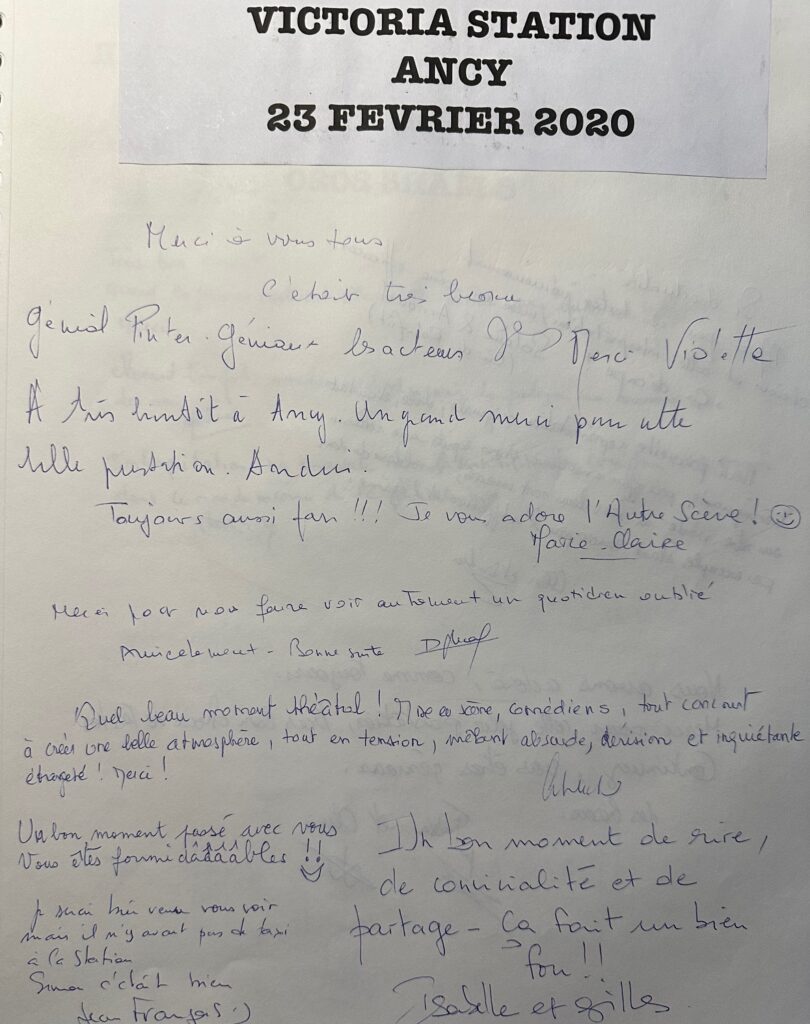 VICTORIA STATION
ANCY
23 FEVRIER 2020
Merci à vous tous
C'était très beau
Génial Pinter. Géniaux les acteurs Merci Violette
À très bientôt à Ancy. Un grand merci pour cette
belle prestation. Andrée.
Toujours aussi fan !!! Je vous adore l'Autre Scène ! ☺
Marie-Claire
Merci pour nous faire voir autrement un quotidien oublié
Amicalement - Bonne suite
Quel beau moment théâtral ! Mise en scène, comédiens, tout concourt
à créer une belle atmosphère, tout en tension, mêlant absurde, dérision et inquiétante
étrangeté ! Merci !
Un bon moment passé avec vous
Vous êtes formidââââbles !!
Je serai bien venu vous voir
mais il n'y avait pas de taxi
à la Station
Sinon c'était bien
Jean François :)
Un bon moment de rire,
de convivialité et de
partage - Ca fait un bien
fou !!
Isabelle et Gilles.